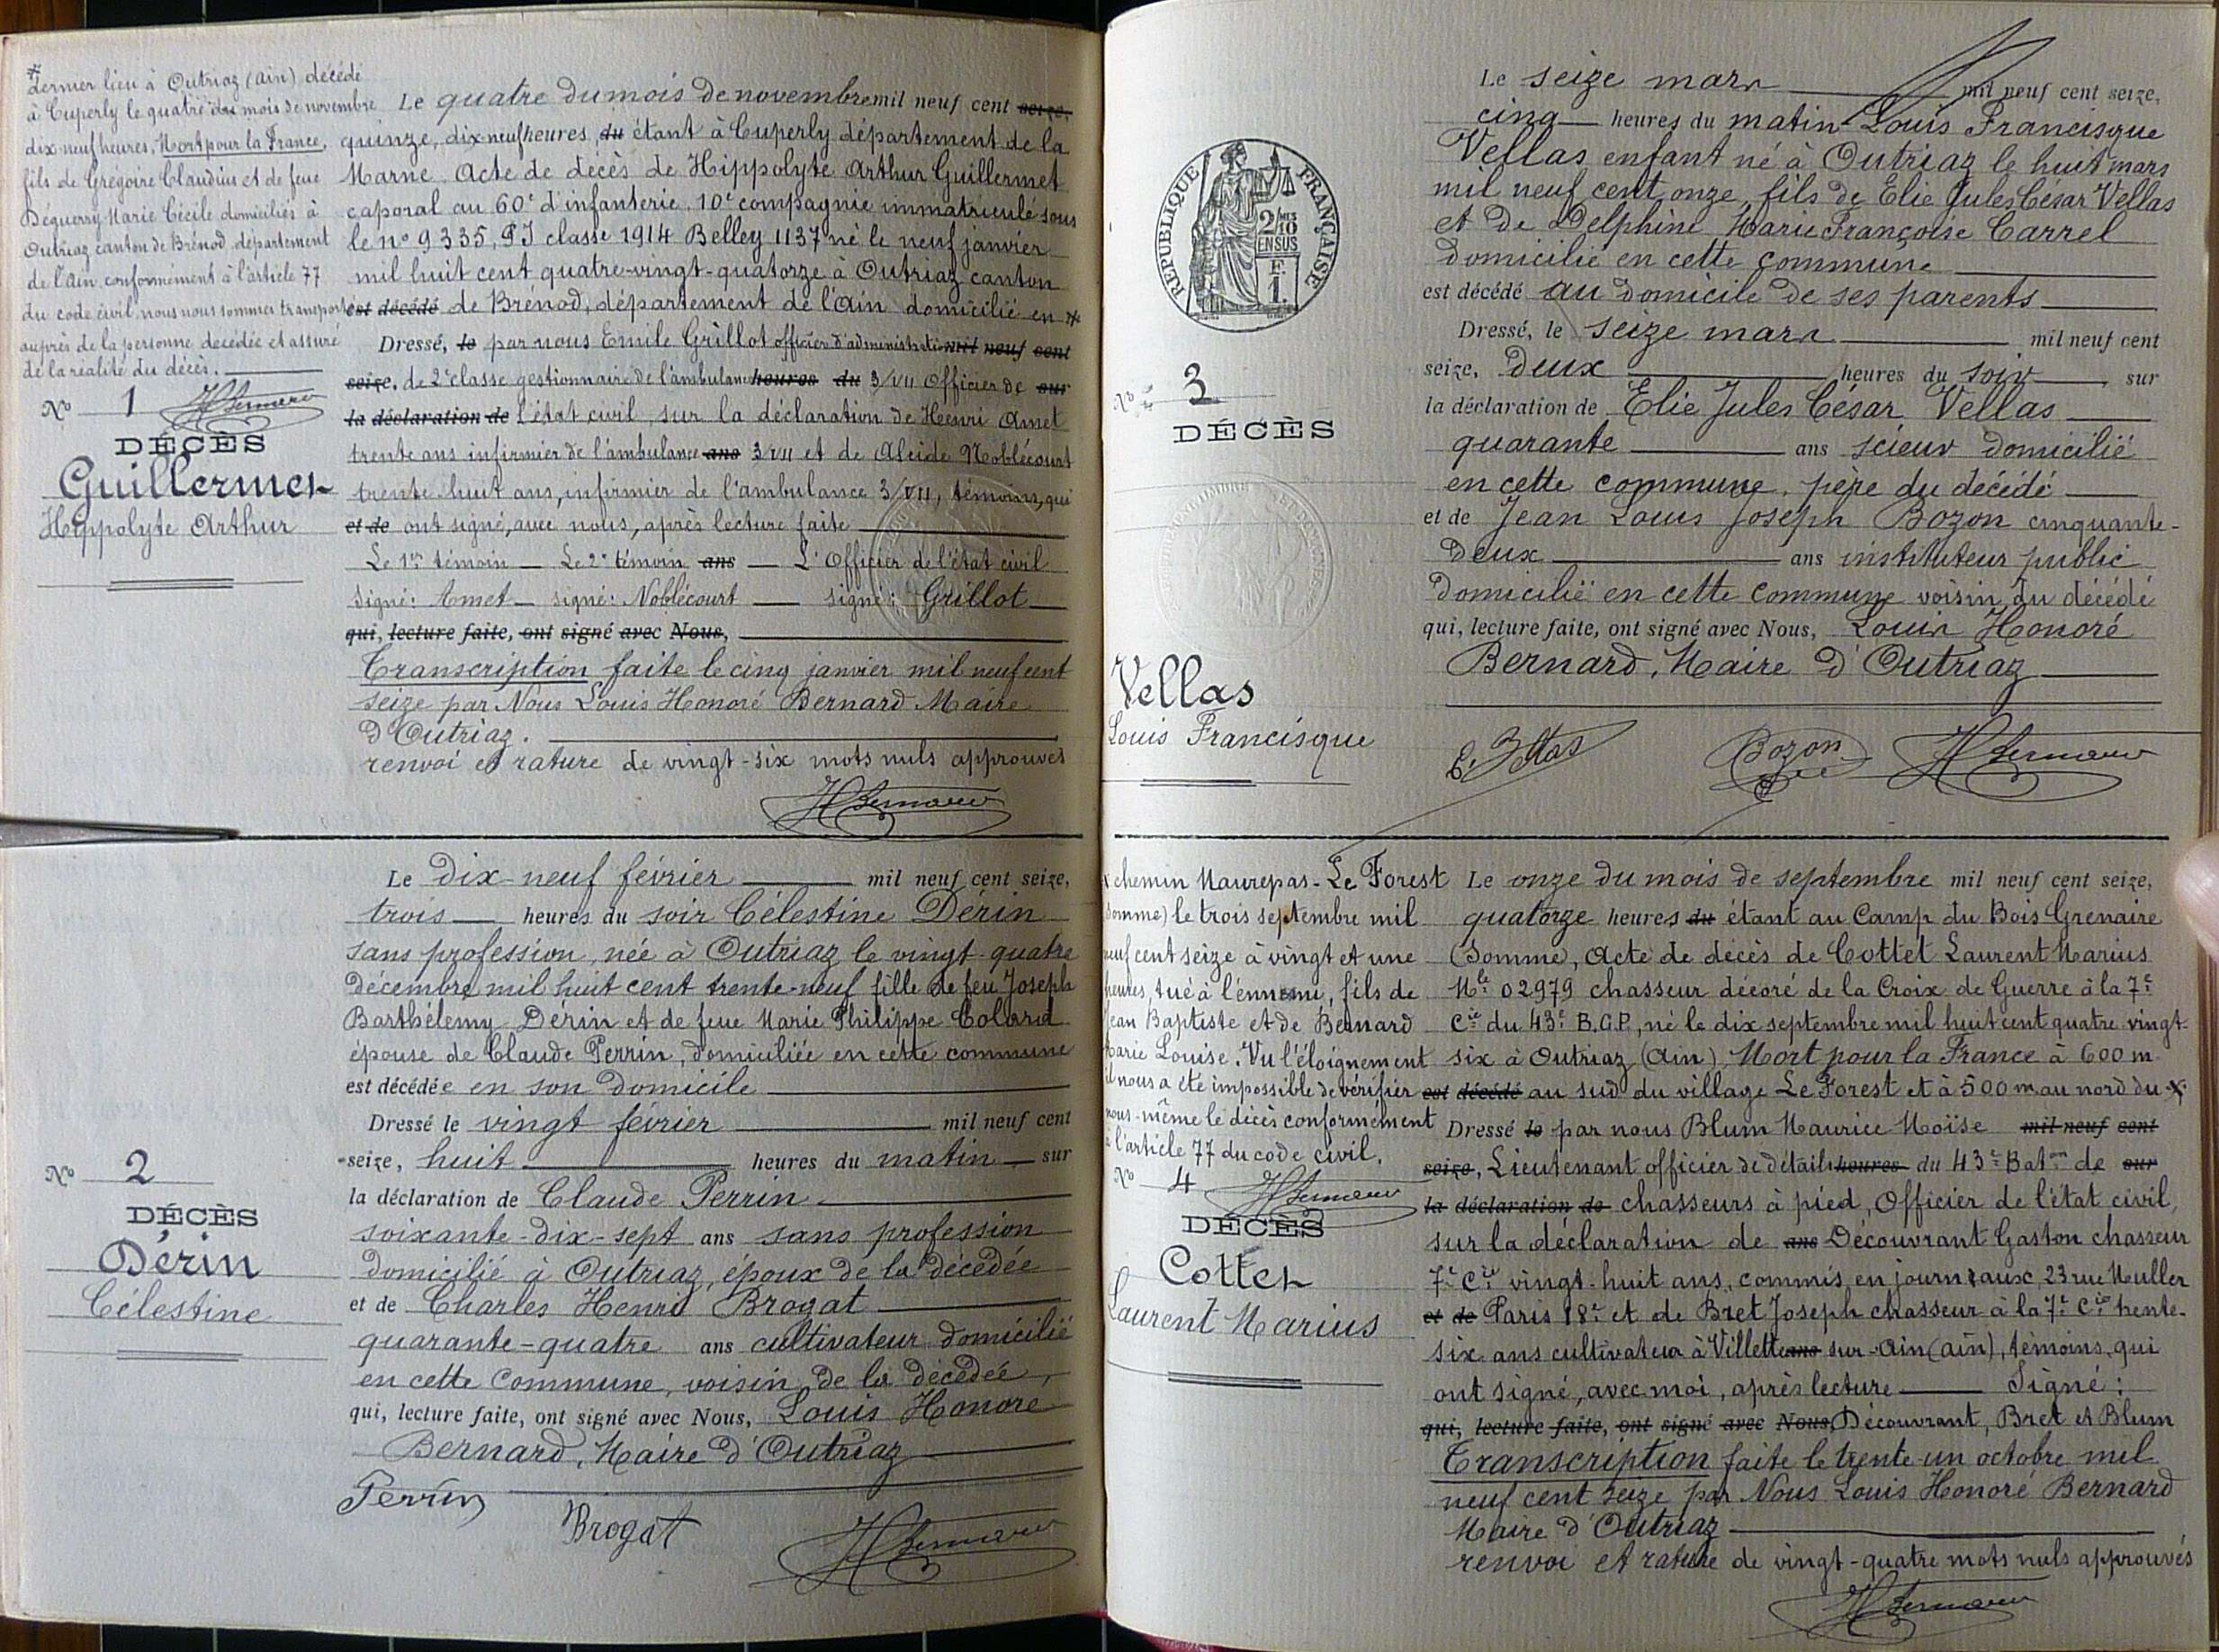 * dernier lieu à Outriaz (Ain) décédé
à Cuperly le quatre du mois de novembre
dix-neuf heures, Mort pour la France,
fils de Grégoire Claudius et de feue
Déguerry Marie Cécile domiciliés à
Outriaz canton de Brénod, département
de l'Ain conformément à l'article 77
du code civil, nous nous sommes transporté
auprès de la personne décédée et assuré
de la réalité du décès.
HBernard
No 1
DÉCÈS
Guillermet
Hippolyte Arthur
Le quatre du mois de novembre mil neuf cent seize,
quinze, dix-neuf heures, du étant à Cuperly département de la
Marne. Acte de décès de Hippolyte Arthur Guillermet
caporal au 60e d'infanterie. 10e compagnie immatriculé sous
le no 9335, PI classe 1914 Belley 1137 né le neuf janvier
mil huit cent quatre-vingt-quatorze à Outriaz canton
est décédé de Brénod, département de l'Ain domicilié en *
Dressé, le par nous Emile Grillot officier d'administration mil neuf cent
seize, de 2e classe gestionnaire de l'ambulance heures du 3/VII Officier de sur
la déclaration de l'état civil, sur la déclaration de Henri Amet
trente ans infirmier de l'ambulance ans 3/VII et de Alcide Noblécourt
trente huit ans, infirmier de l'ambulance 3/VII, témoins, qui
et de ont signé, avec nous, après lecture faite
Le 1er témoin — Le 2e témoin ans — L'Officier de l'état civil
Signé: Amet — signé: Noblécourt — signé: Grillot
qui, lecture faite, ont signé avec Nous,
Transcription faite le cinq janvier mil neuf cent
seize par Nous Louis Honoré Bernard Maire
d'Outriaz.
renvoi et rature de vingt-six mots nuls approuvés
HBernard
No 2
DÉCÈS
Dérin
Célestine
Le dix-neuf février mil neuf cent seize,
trois heures du soir Célestine Dérin
sans profession, née à Outriaz le vingt-quatre
décembre mil huit cent trente-neuf fille de feu Joseph
Barthélemy Dérin et de feue Marie Philippe Colard
épouse de Claude Perrin, domiciliée en cette commune
est décédée en son domicile
Dressé le vingt février mil neuf cent
seize, huit heures du matin sur
la déclaration de Claude Perrin
soixante-dix-sept ans sans profession
domicilié à Outriaz, époux de la décédée
et de Charles Henri Brogat
quarante-quatre ans cultivateur domicilié
en cette commune, voisin de la décédée,
qui, lecture faite, ont signé avec Nous, Louis Honoré
Bernard, Maire d'Outriaz
Perrin
Brogat
HBernard
RÉPUBLIQUE FRANÇAISE
2/10
EN SUS
F.
1.
No 3
DÉCÈS
Vellas
Louis Francisque
Le seize mars mil neuf cent seize,
cinq heures du matin Louis Francisque
Vellas enfant né à Outriaz le huit mars
mil neuf cent onze, fils de Elie Jules César Vellas
et de Delphine Marie Françoise Carrel
domicilié en cette commune
est décédé au domicile de ses parents
Dressé, le seize mars mil neuf cent
seize, deux heures du soir, sur
la déclaration de Elie Jules César Vellas
quarante ans scieur domicilié
en cette commune, père du décédé
et de Jean Louis Joseph Bozon cinquante-
deux ans instituteur public
domicilié en cette commune voisin du décédé
qui, lecture faite, ont signé avec Nous, Louis Honoré
Bernard, Maire d'Outriaz
Bozon
HBernard
x chemin Maurepas-Le Forest
(Somme) le trois septembre mil
neuf cent seize à vingt et une
heures, tué à l'ennemi, fils de
Jean Baptiste et de Bernard
Marie Louise. Vu l'éloignement
il nous a été impossible de vérifier
nous-même le décès conformément
à l'article 77 du code civil.
No 4
HBernard
DÉCÈS
Cottet
Laurent Marius
Le onze du mois de septembre mil neuf cent seize,
quatorze heures du étant au Camp du Bois Grenaire
(Somme, Acte de décès de Cottet Laurent Marius
Mle 02979 chasseur décoré de la Croix de Guerre à la 7e
Cie du 43e B.C.P, né le dix septembre mil huit cent quatre vingt-
six à Outriaz (Ain), Mort pour la France à 600 m
est décédé au sud du village Le Forest et à 500 m au nord du x
Dressé le par nous Blum Maurice Moïse mil neuf cent
seize, Lieutenant officier de détails heures du 43e Baton de sur
la déclaration de chasseurs à pied, Officier de l'état civil,
sur la déclaration de ans Découvrant Gaston chasseur
7e Cie vingt-huit ans, commis en journaux, 23 rue Muller
et de Paris 18e et de Bret Joseph chasseur à la 7e Cie trente-
six ans cultivateur à Villette ans sur-Ain (Ain), témoins, qui
ont signé, avec moi, après lecture — Signé:
qui, lecture faite, ont signé avec Nous, Découvrant, Bret et Blum
Transcription faite le trente-un octobre mil
neuf cent seize par Nous Louis Honoré Bernard
Maire d'Outriaz
renvoi et rature de vingt-quatre mots nuls approuvés
HBernard